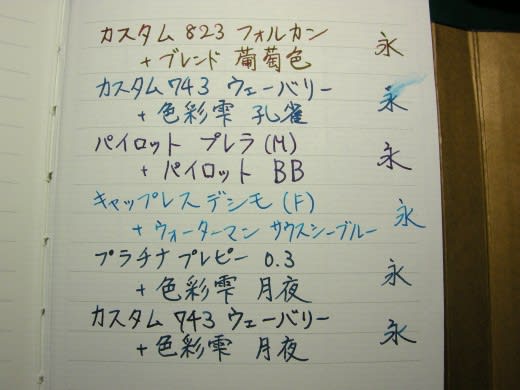 カスタム 823 フォルカン 永
+ ブレンド 葡萄色
カスタム 743 ウェーバリー 永
+ 色彩雫 孔雀
パイロット プレラ (M) 永
+ パイロット BB
キャップレス デシモ (F) 永
+ ウォーターマン サウスシーブルー
プラチナ プレピー 0.3 永
+ 色彩雫 月夜
カスタム 743 ウェーバリー 永
+ 色彩雫 月夜